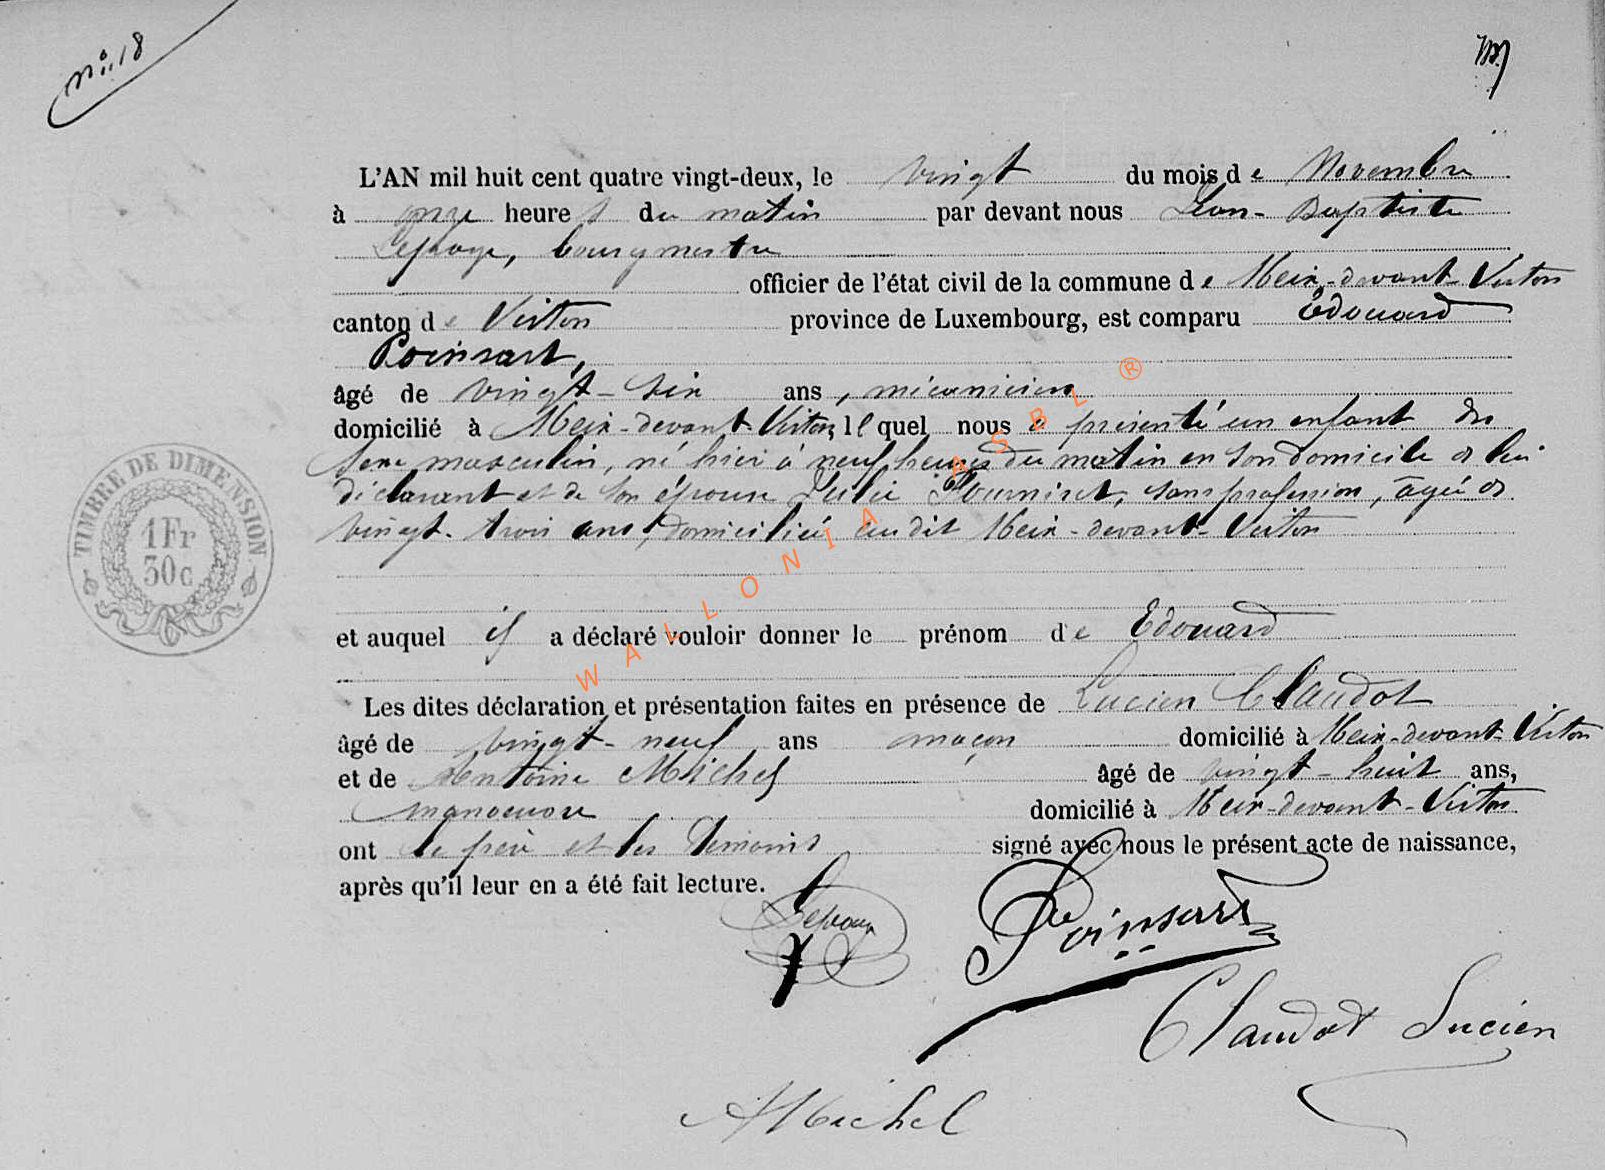 N° 18
L'AN mil huit cent quatre vingt-deux, le vingt du mois de Novembre
à onze heures du matin par devant nous Léon-Baptiste
Lepage, bourgmestre
officier de l'état civil de la commune de Meix-devant-Virton
canton de Virton province de Luxembourg, est comparu Edouard
Poinsart,
âgé de vingt-six ans, mécanicien
domicilié à Meix-devant-Virton, lequel nous a présenté un enfant du
sexe masculin, né hier à neuf heures du matin en son domicile de lui
déclarant et de son épouse Julie Fourniret, sans profession, âgée de
vingt-trois ans, domiciliée audit Meix-devant-Virton
et auquel il a déclaré vouloir donner le prénom de Edouard
Les dites déclaration et présentation faites en présence de Lucien Claudot
âgé de vingt-neuf ans maçon domicilié à Meix-devant-Virton
et de Antoine Michel âgé de vingt-huit ans,
manoeuvre domicilié à Meix-devant-Virton
ont le père et les témoins signé avec nous le présent acte de naissance,
après qu'il leur en a été fait lecture.
Lepage Poinsart
Claudot Lucien
A Michel
TIMBRE DE DIMENSION
1 Fr
30 c
WALLONIA ASBL ®